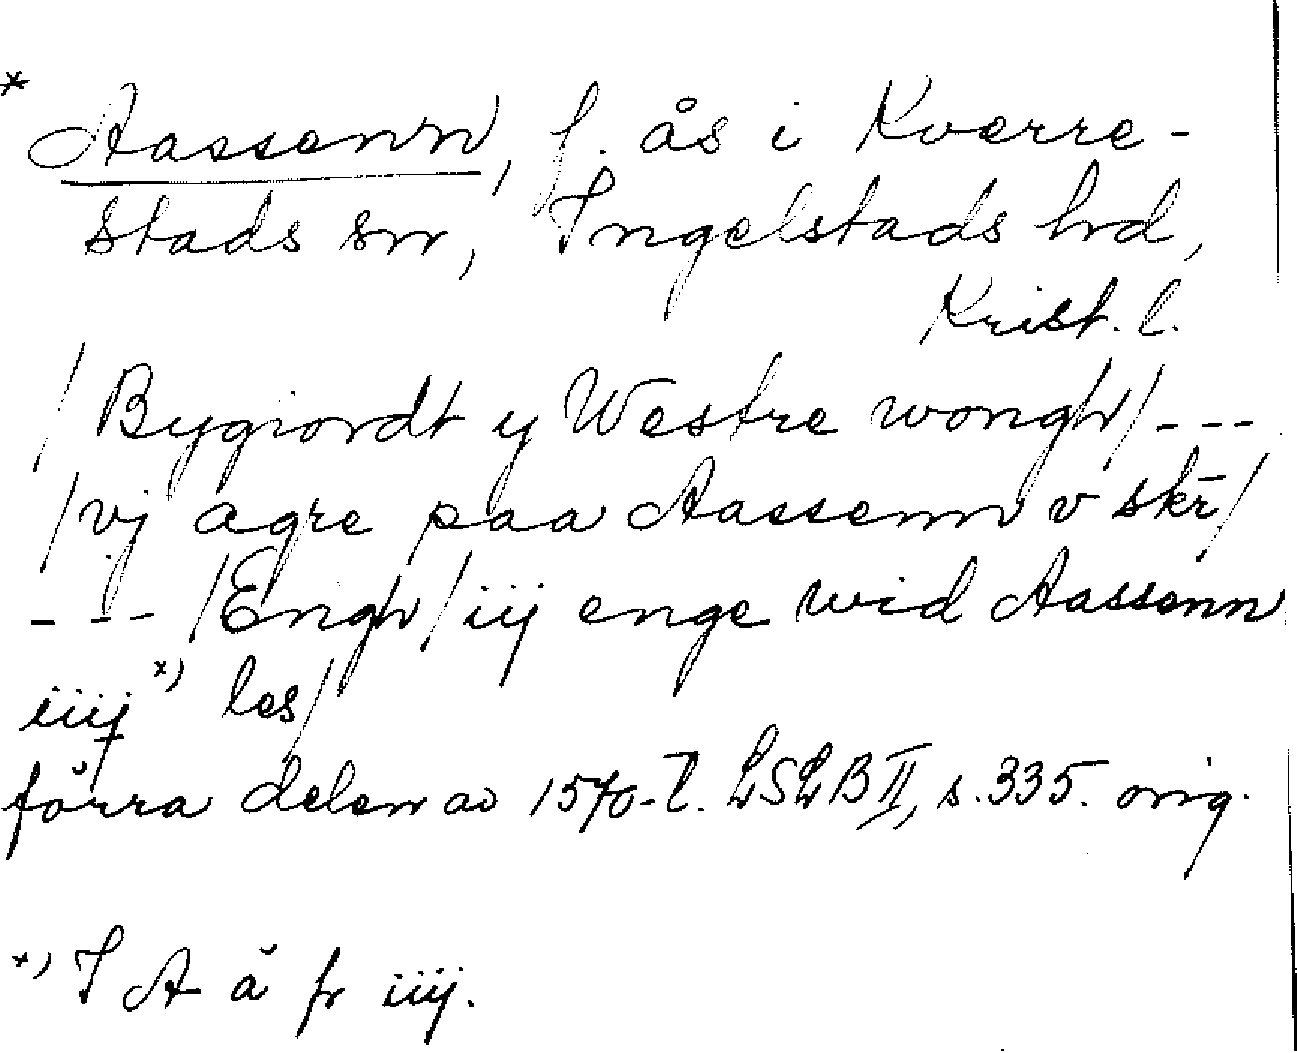 * Aassenn, f. ås i Kverre-
stads sn, Ingelstads hrd,
Krist. l.
/Bygiordt y Westre wongh/---
/vj agre paa Aassenn v skr/
--- /Engh/ iij enge wid Aassenn
iiij *) les/
förra delen av 1570-t. LSLB II, s. 335. orig.
*) I A å fr iiij.